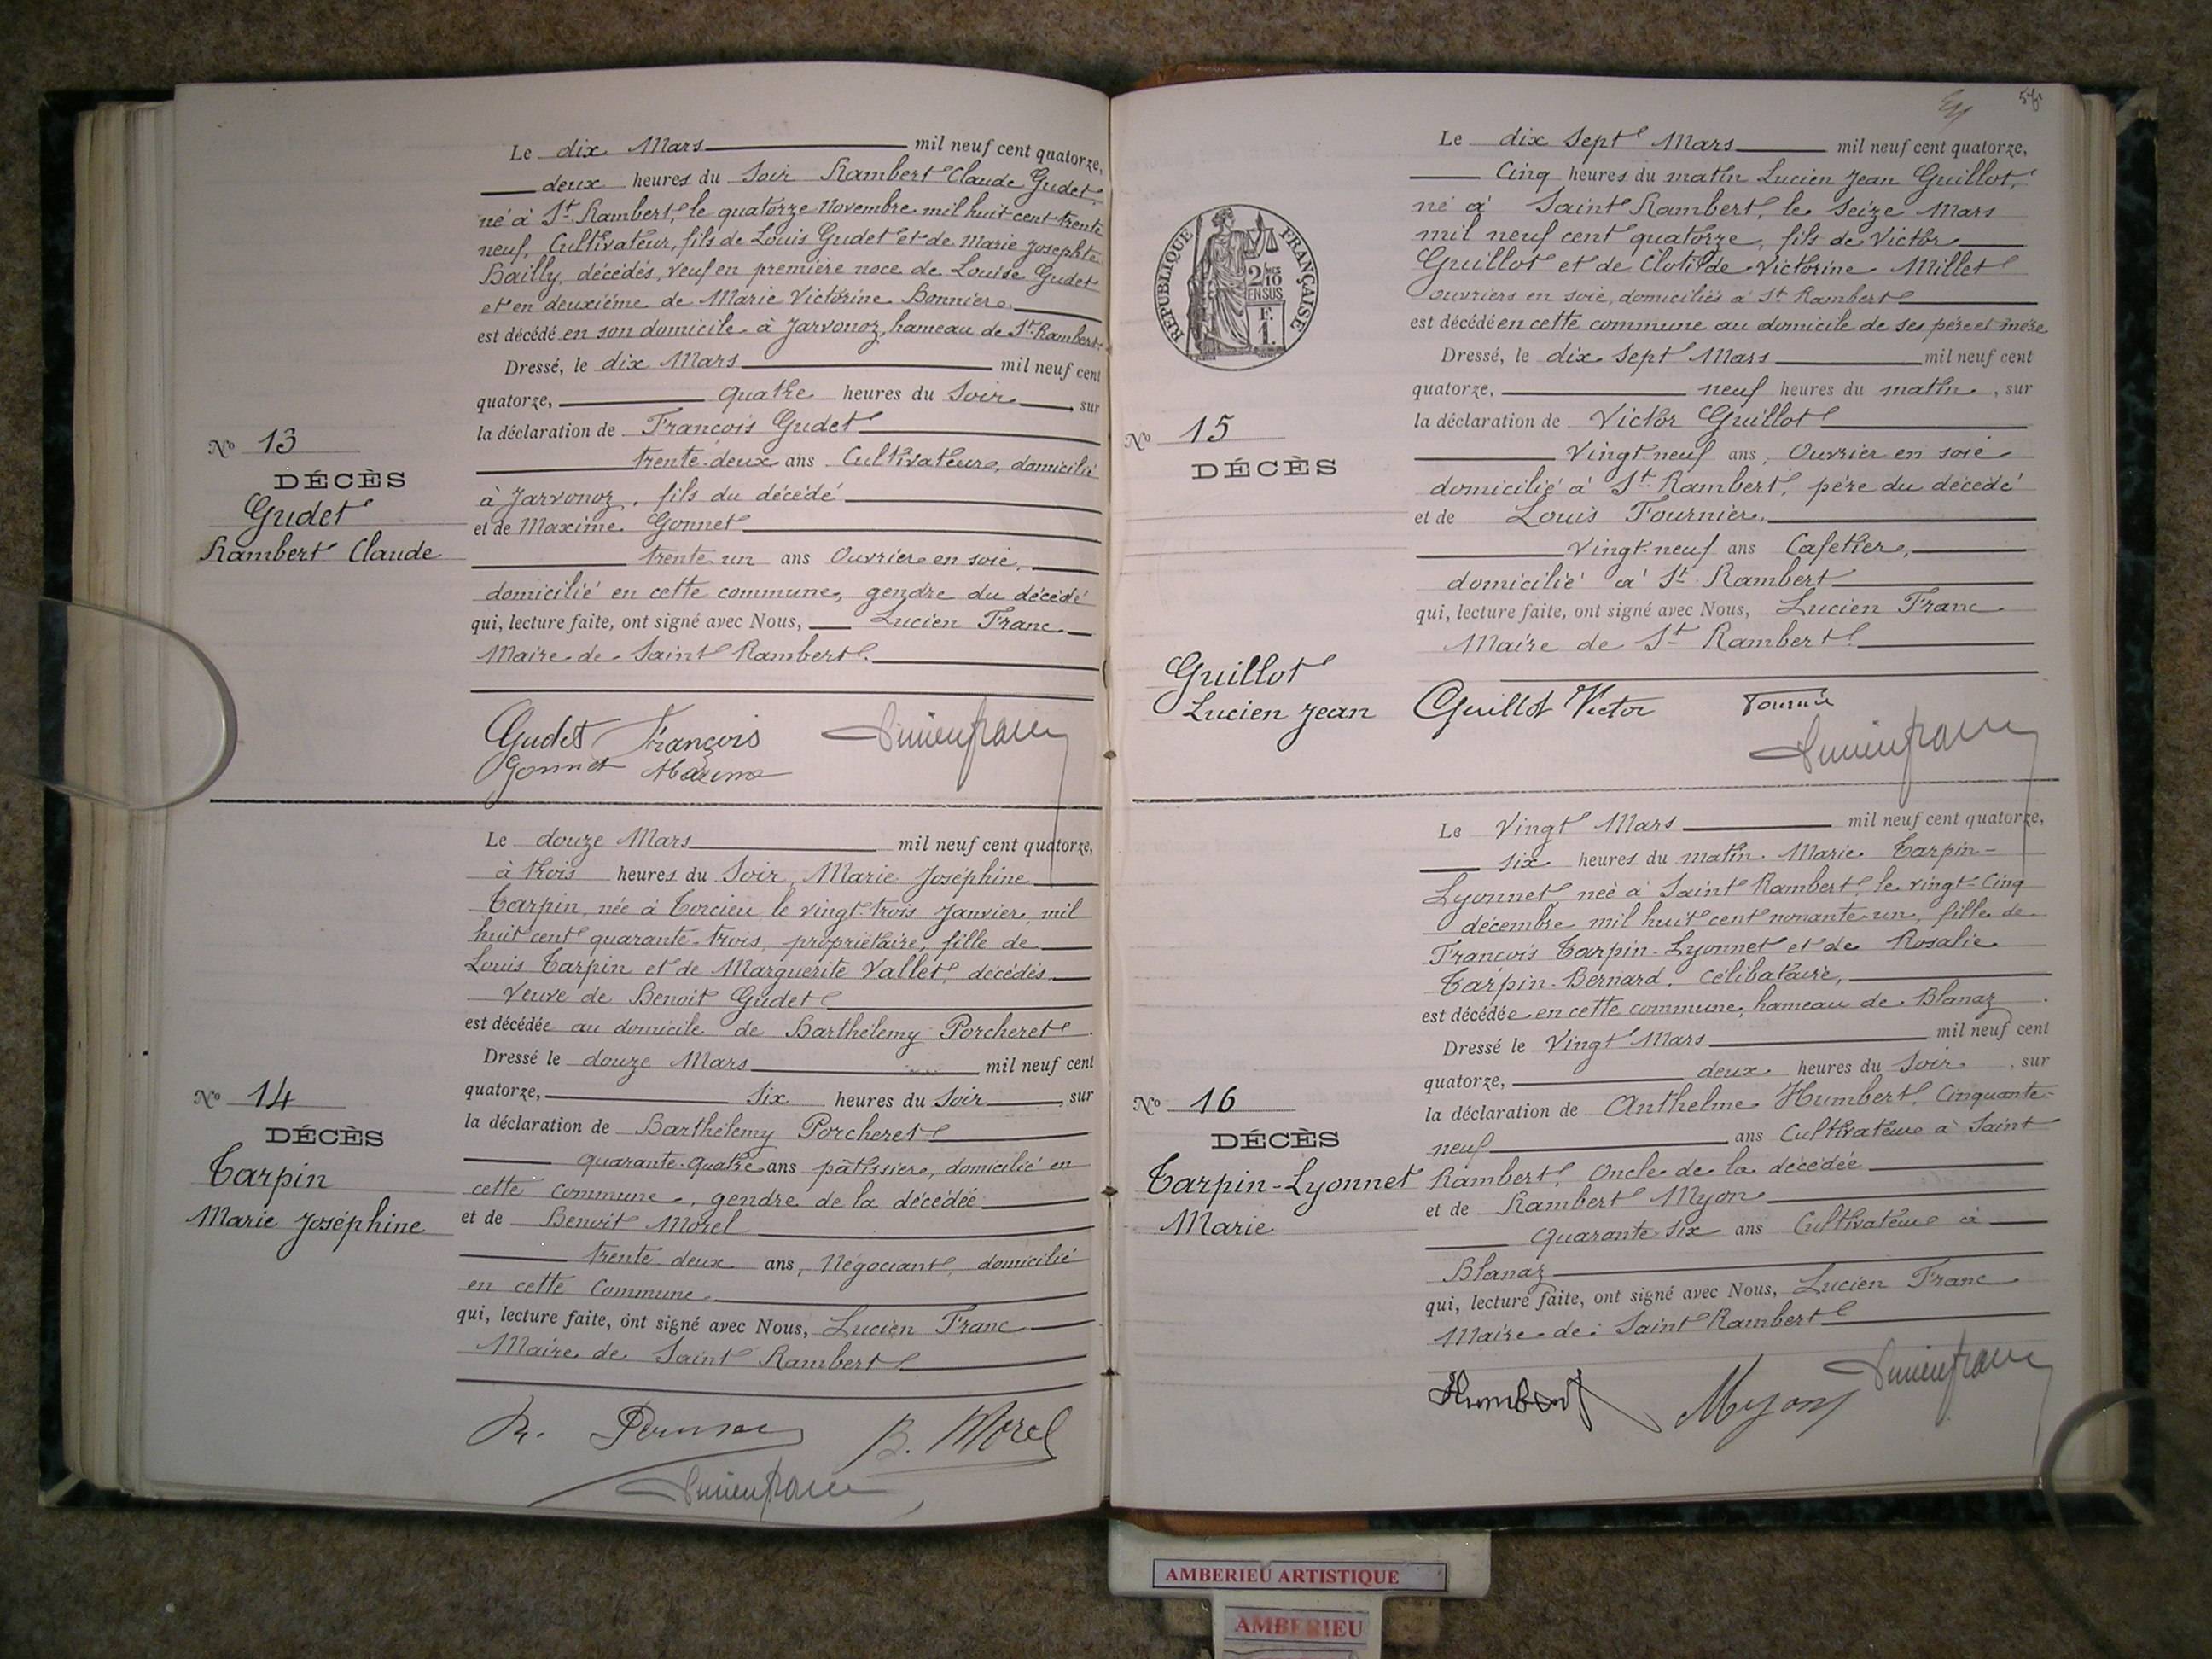 Le dix Mars mil neuf cent quatorze,
deux heures du Soir Rambert Claude Gudet,
né à St Rambert, le quatorze Novembre mil huit cent trente
neuf, Cultivateur, fils de Louis Gudet et de Marie Josephte
Bailly, décédés, veuf en première noce de Louise Gudet
et en deuxième de Marie Victorine Bonnier
est décédé en son domicile à Jarvonoz, hameau de St Rambert.
Dressé, le dix Mars mil neuf cent
quatorze, quatre heures du Soir, sur
la déclaration de François Gudet
trente-deux ans Cultivateur, domicilié
à Jarvonoz, fils du décédé
et de Maxime Gonnet
trente-un ans Ouvrier en soie,
domicilié en cette commune, gendre du décédé
qui, lecture faite, ont signé avec Nous, Lucien Franc
Maire de Saint Rambert.
No 13
DÉCÈS
Gudet
Rambert Claude
Gudet François
Gonnet Maxime
Lucien Franc
Le douze Mars mil neuf cent quatorze,
à trois heures du Soir, Marie Joséphine
Tarpin, née à Torcieu le vingt-trois Janvier mil
huit cent quarante-trois, propriétaire, fille de
Louis Tarpin et de Marguerite Vallet, décédés,
Veuve de Benoit Gudet
est décédée au domicile de Barthélemy Porcheret.
Dressé le douze Mars mil neuf cent
quatorze, Six heures du Soir, sur
la déclaration de Barthélemy Porcheret
quarante-quatre ans pâtissier, domicilié en
cette commune, gendre de la décédée
et de Benoit Morel
trente deux ans, Négociant, domicilié
en cette Commune
qui, lecture faite, ont signé avec Nous, Lucien Franc
Maire de Saint Rambert
No 14
DÉCÈS
Tarpin
Marie Joséphine
B. Morel
Lucien Franc
Le dix Sept Mars mil neuf cent quatorze,
Cinq heures du matin Lucien Jean Guillot,
né à Saint Rambert, le Seize Mars
mil neuf cent quatorze, fils de Victor
Guillot et de Clotilde Victorine Millet
ouvriers en soie, domiciliés à St Rambert
est décédé en cette commune au domicile de ses père et mère
Dressé, le dix Sept Mars mil neuf cent
quatorze, neuf heures du matin, sur
la déclaration de Victor Guillot
Vingt-neuf ans, Ouvrier en soie
domicilié à St Rambert, père du décédé
et de Louis Fournier,
Vingt-neuf ans Cafetier,
domicilié à St Rambert
qui, lecture faite, ont signé avec Nous, Lucien Franc
Maire de St Rambert.
RÉPUBLIQUE FRANÇAISE
2/10
EN SUS
F.
1.
No 15
DÉCÈS
Guillot
Lucien Jean
Guillot Victor
Lucien Franc
Le Vingt Mars mil neuf cent quatorze,
six heures du matin Marie Tarpin-
Lyonnet, née à Saint Rambert, le vingt-Cinq
décembre mil huit cent nonante-un, fille de
François Tarpin-Lyonnet et de Rosalie
Tarpin-Bernard, célibataire,
est décédée en cette commune, hameau de Blanaz.
Dressé le Vingt Mars mil neuf cent
quatorze, deux heures du Soir, sur
la déclaration de Anthelme Humbert, Cinquante-
neuf ans Cultivateur à Saint
Rambert, Oncle de la décédée
et de Rambert Myon
Quarante-six ans Cultivateur à
Blanaz
qui, lecture faite, ont signé avec Nous, Lucien Franc
Maire de Saint Rambert
No 16
DÉCÈS
Tarpin-Lyonnet
Marie
Humbert
Myon
Lucien Franc
AMBERIEU ARTISTIQUE
AMBERIEU